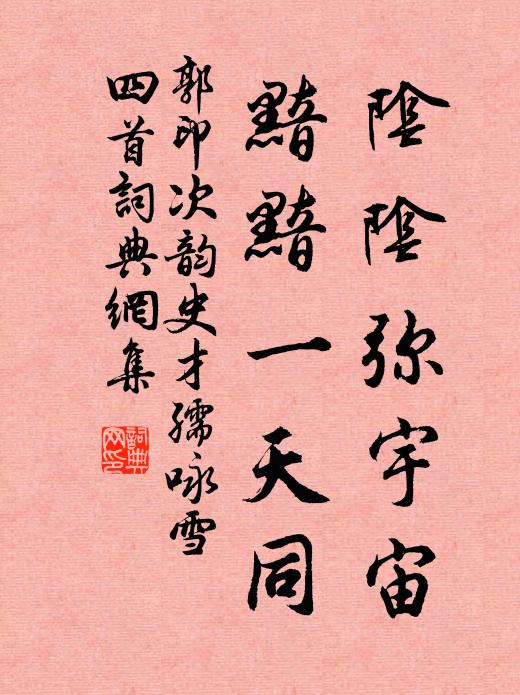 陰陰弥宇宙
黯黯一天同
郭印次韵史才孺咏雪
四首詞典網集
詞典網印